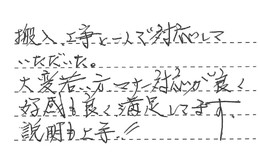 搬入、工事と一人で対応して
いただいた。
大変若い方でマナー対応が良く
好感も良く満足してます。
説明も上手.!!